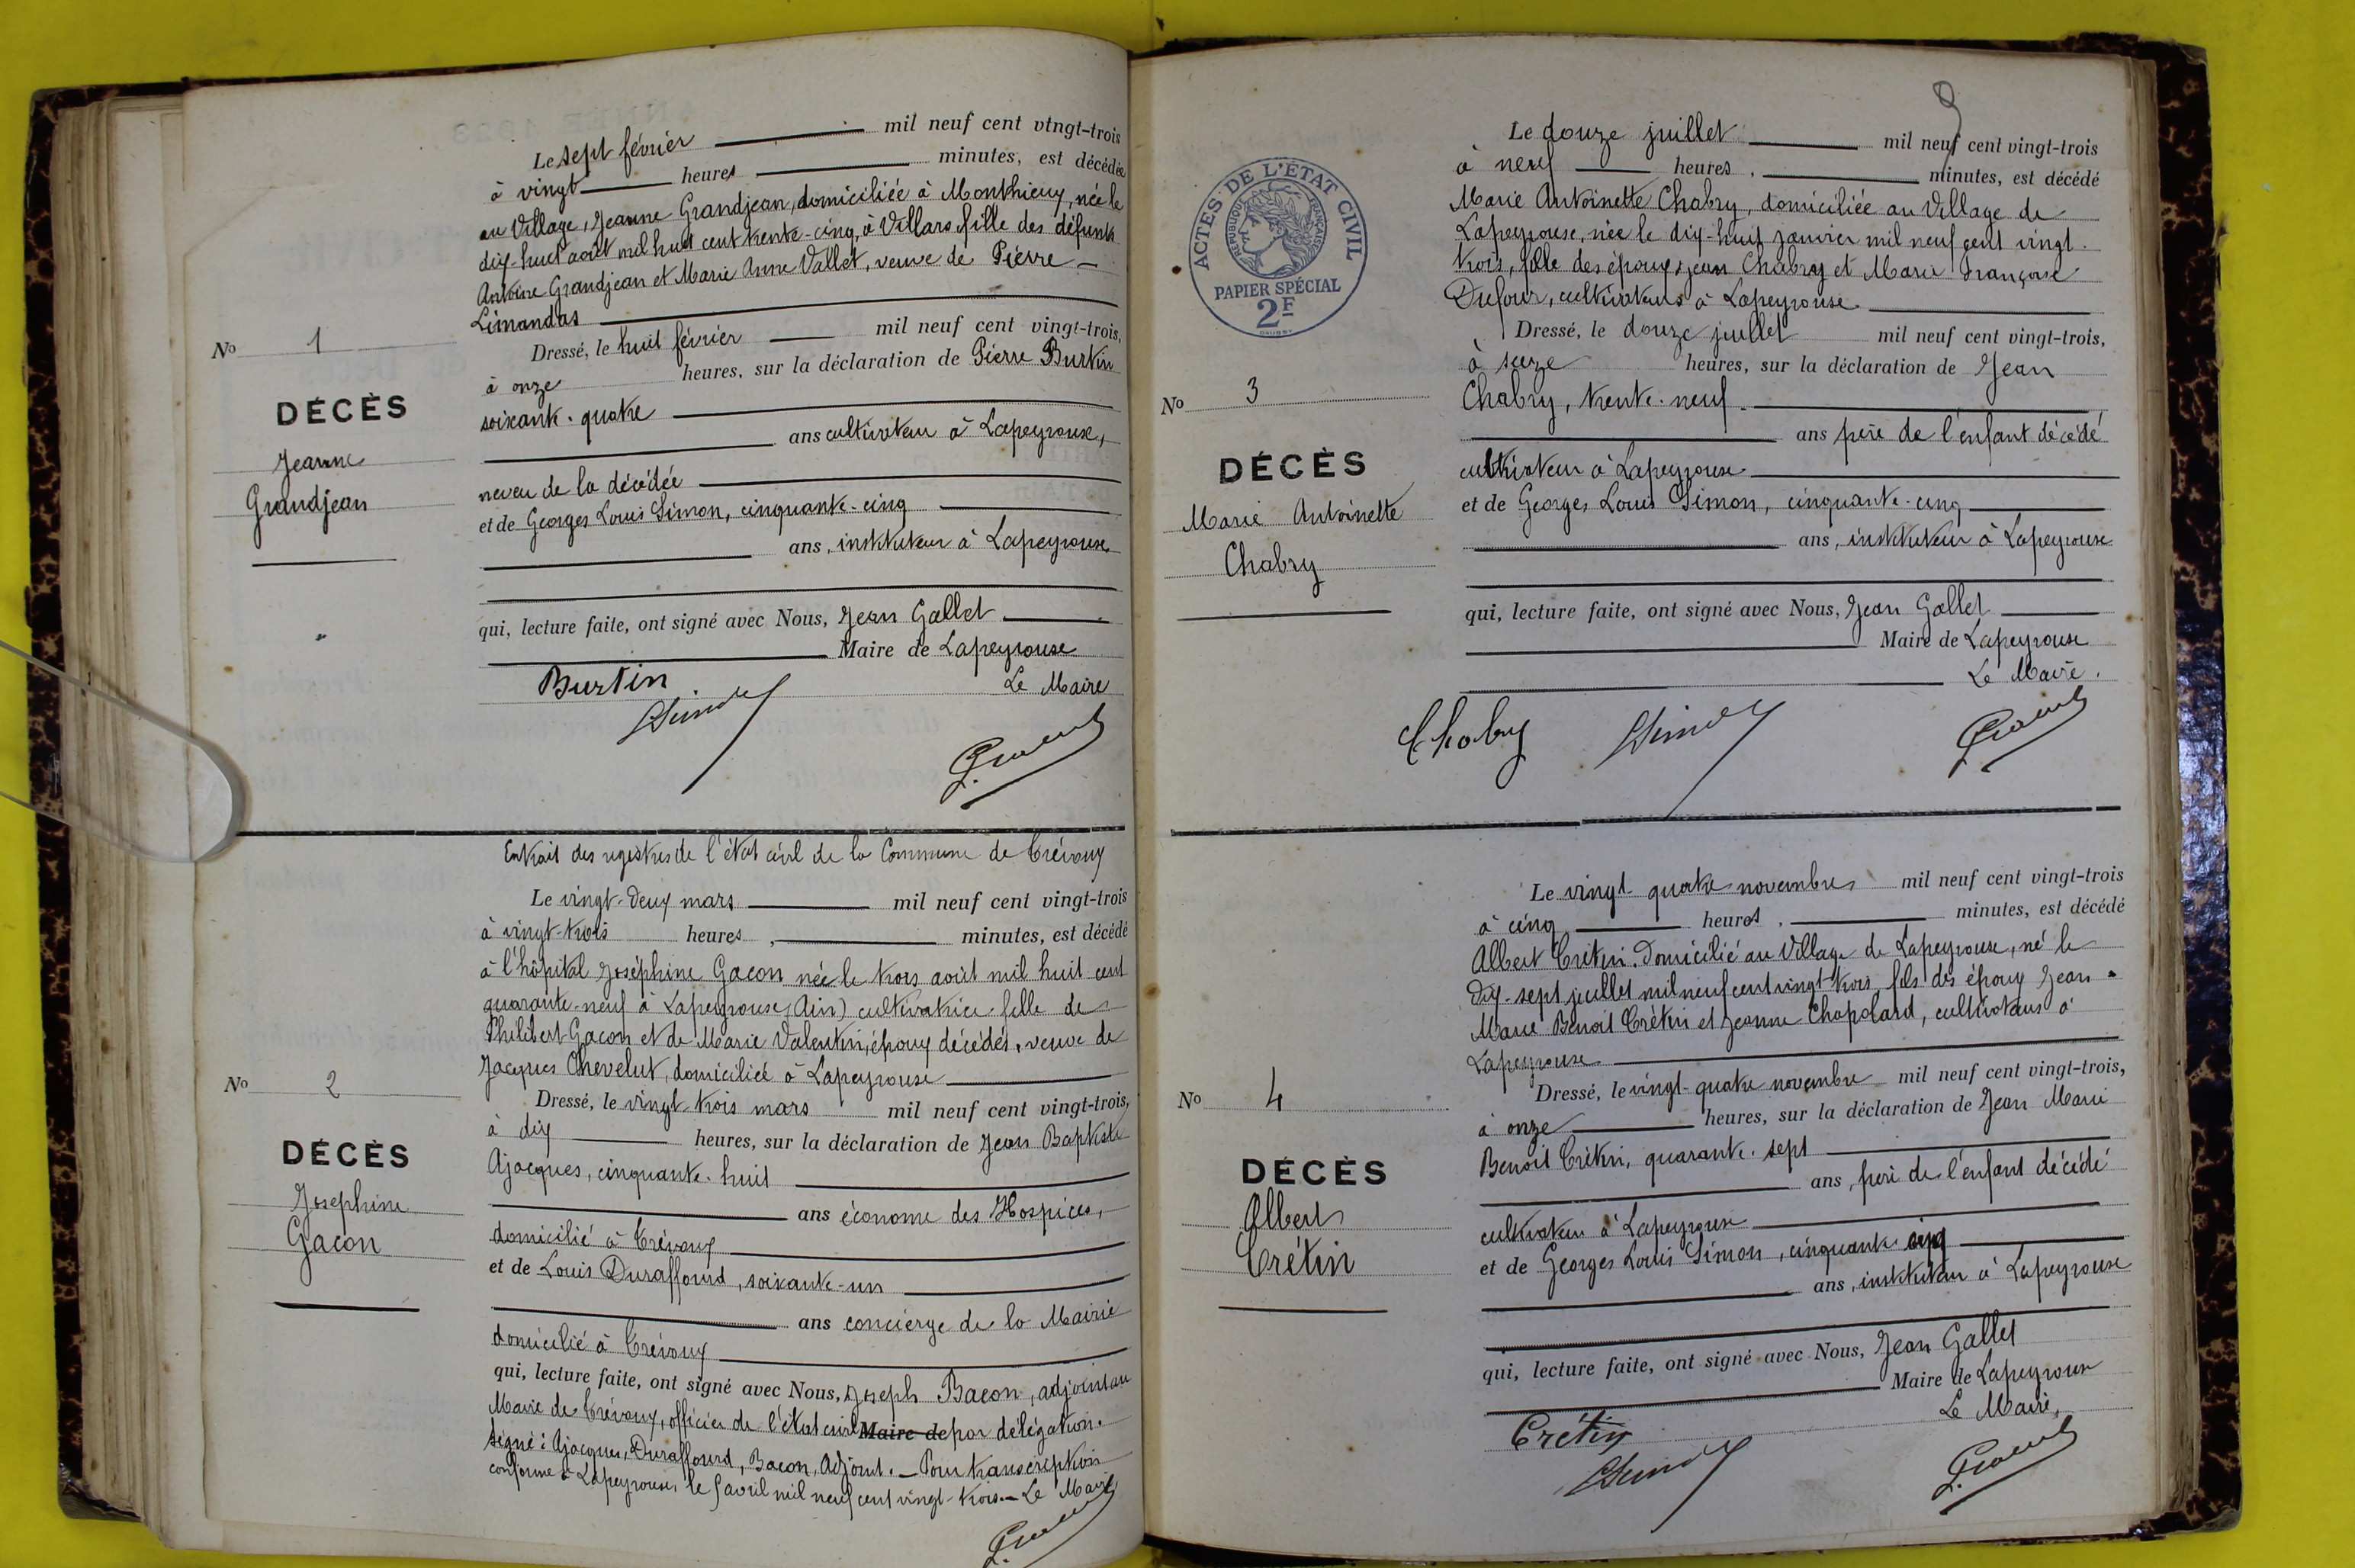 Le sept février mil neuf cent vingt-trois
à vingt heures minutes, est décédée
au Village, Jeanne Grandjean, domiciliée à Monthieux, née le
dix-huit août mil huit cent trente-cinq, à Villars, fille des défunts
Antoine Grandjean et Marie Anne Vallet, veuve de Pierre
Limandas
No 1
DÉCÈS
Jeanne
Grandjean
Dressé, le huit février mil neuf cent vingt-trois,
à onze heures, sur la déclaration de Pierre Burtin
soixante-quatre
ans cultivateur à Lapeyrouse,
neveu de la décédée
et de Georges Louis Simon, cinquante-cinq
ans, instituteur à Lapeyrouse
qui, lecture faite, ont signé avec Nous, Jean Gallet
Maire de Lapeyrouse
Burtin
Le Maire
Extrait des registres de l'état civil de la Commune de Trévoux
Le vingt-deux mars mil neuf cent vingt-trois
à vingt-trois heures, minutes, est décédé
à l'hôpital Joséphine Gacon née le trois août mil huit cent
quarante-neuf à Lapeyrouse (Ain) cultivatrice fille de
Philibert Gacon et de Marie Valentin, époux décédés, veuve de
Jacques Chevelut, domiciliée à Lapeyrouse
No 2
DÉCÈS
Josephine
Gacon
Dressé, le vingt-trois mars mil neuf cent vingt-trois,
à dix heures, sur la déclaration de Jean Baptiste
Ajacques, cinquante-huit
ans économe des Hospices,
domicilié à Trévoux
et de Louis Duraffourd, soixante-un
ans concierge de la Mairie
domicilié à Trévoux
qui, lecture faite, ont signé avec Nous, Joseph Bacon, adjoint au
Maire de Trévoux, officier de l'état civil Maire de par délégation.
Signé: Ajacques, Duraffourd, Bacon, Adjoint. — Pour transcription
conforme à Lapeyrouse, le 5 avril mil neuf cent vingt-trois. — Le Maire,
9
ACTES DE L'ÉTAT CIVIL
RÉPUBLIQUE FRANÇAISE
PAPIER SPÉCIAL
2F
Le douze juillet mil neuf cent vingt-trois
à neuf heures, minutes, est décédé
Marie Antoinette Chabry, domiciliée au Village de
Lapeyrouse, née le dix-huit janvier mil neuf cent vingt-
trois, fille des époux Jean Chabry et Marie Françoise
Dufour, cultivateurs à Lapeyrouse.
No 3
DÉCÈS
Marie Antoinette
Chabry
Dressé, le douze juillet mil neuf cent vingt-trois,
à seize heures, sur la déclaration de Jean
Chabry, trente-neuf
ans père de l'enfant décédé
cultivateur à Lapeyrouse
et de Georges Louis Simon, cinquante-cinq
ans, instituteur à Lapeyrouse
qui, lecture faite, ont signé avec Nous, Jean Gallet
Maire de Lapeyrouse
Le Maire.
Chabry
Le vingt-quatre novembre mil neuf cent vingt-trois
à cinq heures, minutes, est décédé
Albert Crétin. Domicilié au Village de Lapeyrouse, né le
dix-sept juillet mil neuf cent vingt-trois, fils des époux Jean
Marie Benoit Crétin et Jeanne Chapolard, cultivateurs à
Lapeyrouse
No 4
DÉCÈS
Albert
Crétin
Dressé, le vingt-quatre novembre mil neuf cent vingt-trois,
à onze heures, sur la déclaration de Jean Marie
Benoit Crétin, quarante-sept
ans, père de l'enfant décédé
cultivateur à Lapeyrouse
et de Georges Louis Simon, cinquante-cinq
ans, instituteur à Lapeyrouse
qui, lecture faite, ont signé avec Nous, Jean Gallet
Maire de Lapeyrouse
Le Maire,
Crétin